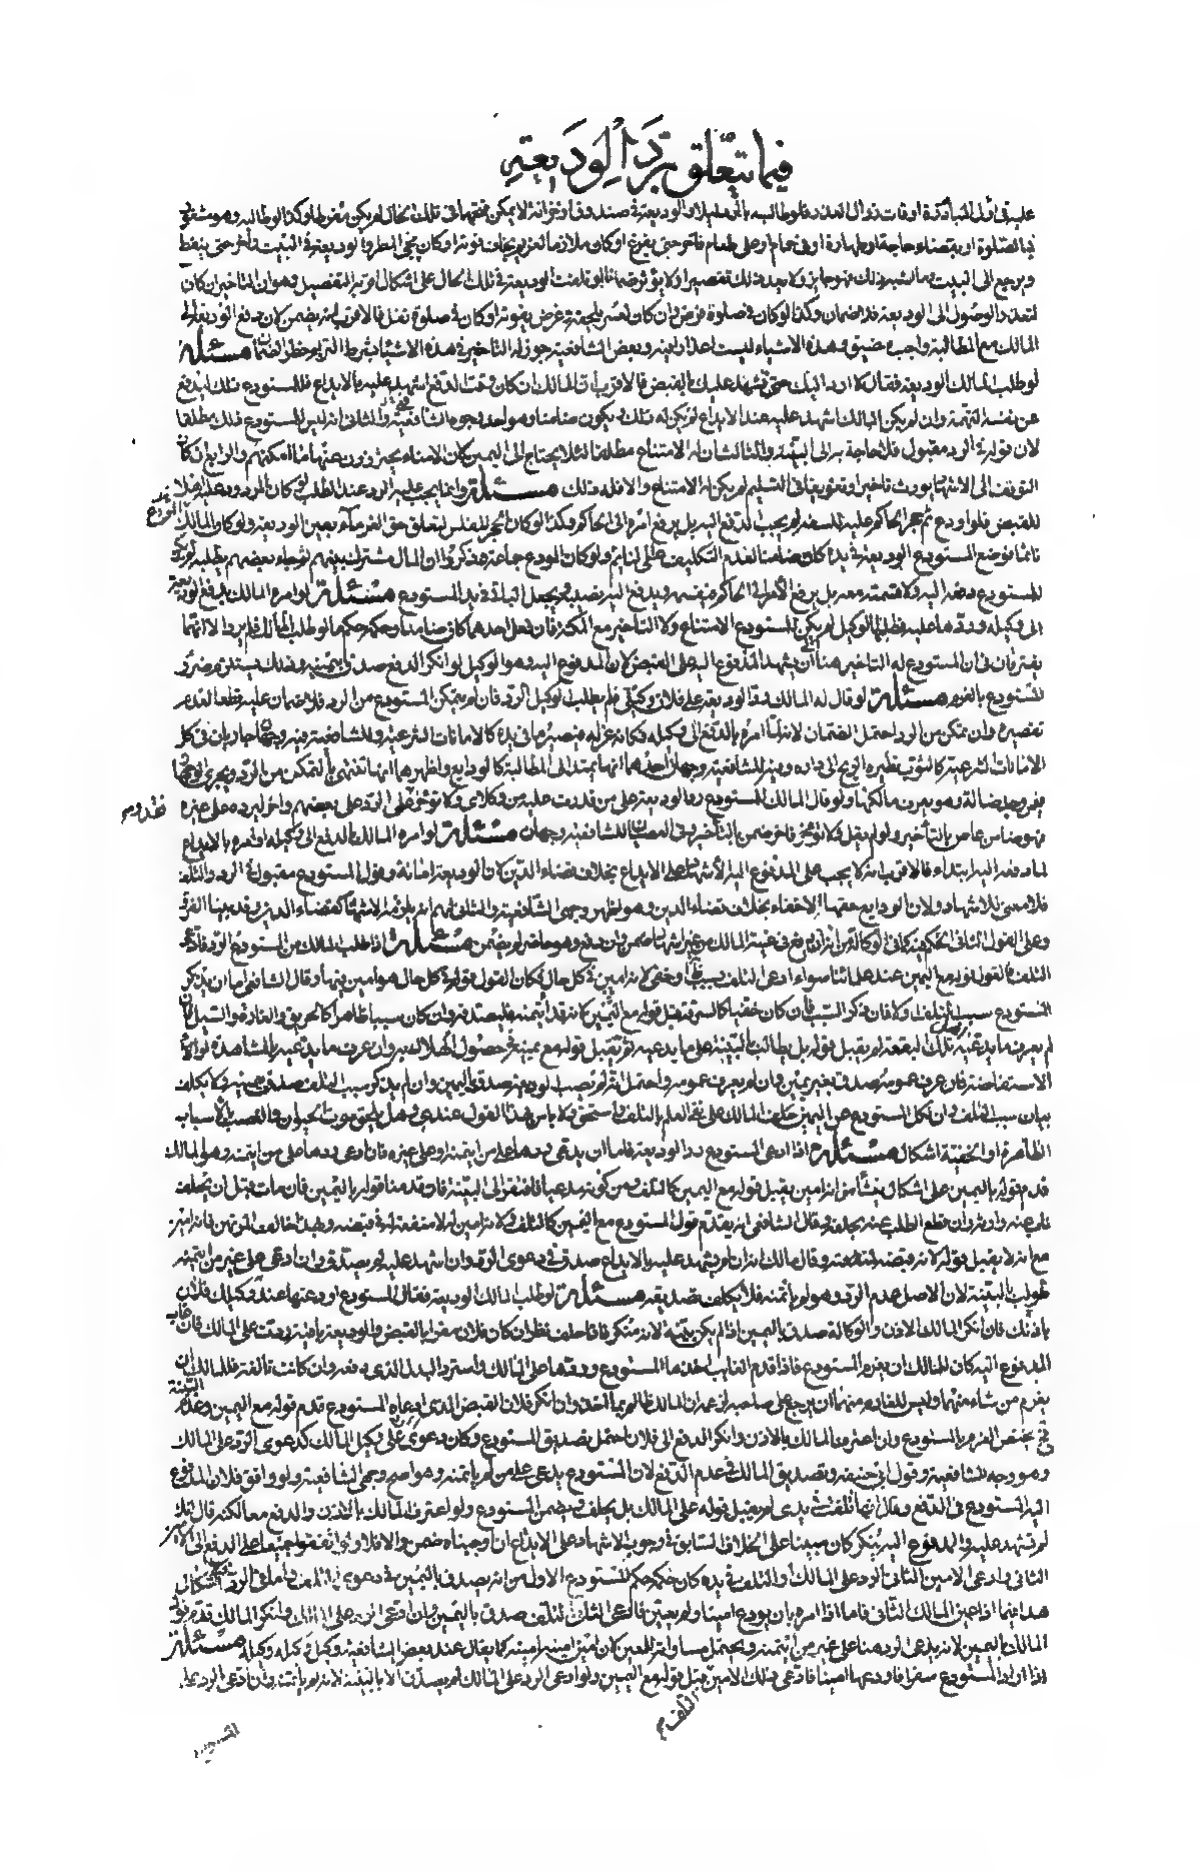 فيما يتعلق برد الوديعة
عليه في أول المبادرة اوقات زوال العذر ولو طالبه بالوديعة في صندوق أو خزانة لا يمكن فتحها في تلك الحال لم يكن مفرطا وكذا لو طالبه وهو مشغول
في الصلوة او بقضاء حاجة او طهارة او في حمام او على طعام فأخر حتى يفرغ او كان ملازما لغريم يخاف فوته او كان يجيء المطر والوديعة في البيت فأخر حتى ينقطع
ويرجع الى البيت وما اشبه ذلك فهو جايز ولا يعد ذلك تقصيرا ولا يؤثر ضمانا لو تلفت الوديعة في تلك الحال على اشكال اقربه التفصيل وهو ان التاخير ان كان
لتعذر الوصول الى الوديعة فلا ضمان وكذا لو كان في صلوة فرض وان كان لعسر يلحقه او غرض يفوته او كان في صلوة نفل فالاقرب انه يضمن لان دفع الوديعة الى
المالك مع المطالبة واجب مضيق وهذه الاشياء ليست اعذارا فيه وبعض الشافعية جوز له التاخير في هذه الاشياء بشرط التزام خطر الضمان مسئلة
لو طلب المالك الوديعة فقال لا ارد اليك حتى تشهد عليك بالقبض فالاقرب ان المالك ان كان وقت الدفع اشهد عليه بالايداع فللمستودع ذلك ليدفع
عن نفسه التهمة وان لم يكن المالك اشهد عليه عند الايداع لم يكن له ذلك ويكون ضامنا وهو احد وجوه الشافعية والثاني انه ليس للمستودع ذلك مطلقا
لان قوله في الرد مقبول فلا حاجة به الى البينة والثالث ان له الامتناع مطلقا لئلا يحتاج الى اليمين فان الامناء يحترزون عنها ما امكنهم والرابع ان كان
التوقف الى الاشهاد يورث تاخيرا وتعويقا في التسليم لم يكن له الامتناع والا فله ذلك مسئلة وانما يجب عليه الرد عند الطلب لو كان المردود عليه اهلا
للقبض فلو اودع ثم حجر الحاكم عليه للسفه لم يجب الدفع اليه بل يرفع امره الى الحاكم وكذا لو كان الحجر للفلس لتعلق حق الغرماء بعين الوديعة ولو كان المالك
نائما فوضع المستودع الوديعة في يده كان ضامنا لعدم التكليف على النايم ولو كان المودع جماعة وذكروا ان المال مشترك بينهم ثم جاء بعضهم يطلبه لم يكن
للمستودع دفعه اليه ولا قسمته معه بل يرفع الأمر الى الحاكم فيقسمه ويدفع اليه نصيبه ويجعل الباقي في يد المستودع مسئلة لو امره المالك بدفع الوديعة
الى وكيله وردها عليه فطلبها الوكيل لم يكن للمستودع الامتناع ولا التاخير مع المكنة فان فعل احدهما كان ضامنا وحكمه حكم ما لو طلب المالك فلم يرد الا انهما
يفترقان في ان المستودع له التاخير هنا الى ان يشهد المدفوع اليه على القبض لان المدفوع اليه وهو الوكيل لو انكر الدفع صدق بيمينه وذلك يستلزم ضرر
المستودع بالغرم مسئلة لو قال له المالك رد الوديعة على فلان وكيلي فلم يطلب الوكيل الرد فان لم يتمكن المستودع من الرد فلا ضمان عليه قطعا لعدم
تقصيره وان تمكن من الرد احتمل الضمان لانه لما امره بالدفع الى وكيله فكانه عزله فيصير ما في يده كالامانات الشرعية وللشافعية فيه وجهان جاريان في كل
الامانات الشرعية كالثوب تطيره الريح الى داره وفيه للشافعية وجهان احدهما انها يمتد الى المطالبة كالودايع واظهرهما انها تنتهي بالتمكن من الرد ويجري الوجهان
فيمن وجد ضالة وهو يعرف مالكها ولو قال المالك للمستودع رد الوديعة على من قدرت عليه من وكلائي ولا تؤخر فقدر على الرد على بعضهم واخر ليرده على غيره
فهو ضامن عاص بالتأخير ولو لم يقل ولا تؤخر فاخر ضمن بالتأخير وفي العصيان للشافعية وجهان مسئلة لو امره المالك بالدفع الى وكيله او امره بالايداع
لما دفعه اليه ابتداء فالاقرب انه لا يجب على المدفوع اليه الأشهاد على الايداع بخلاف قضاء الدين لان الوديعة امانة وقول المستودع مقبول في الرد والتلف
فلا معنى للاشهاد ولان الودايع حقها الاخفاء بخلاف قضاء الدين وهو اظهر وجهي الشافعية والثاني انه يلزمه الاشهاد كقضاء الدين وقد بينا الفرق
وعلى القول الثاني الحكم فيه كما في الوكالة من انه ان دفع في غيبة المالك من غير اشهاد ضمن وان دفع وهو حاضر لم يضمن مسئلة اذا طلب المالك من المستودع الرد فادعى
التلف فالقول قوله مع اليمين عند علمائنا سواء ادعى التلف بسبب ظاهر او خفي لانه امين في كل حال فكان القول قوله في كل حال هو امين فيها وقال الشافعي اما ان يذكر
المستودع سبب التلف او لا فان ذكر السبب فان كان خفيا كالسرقة قبل قوله مع اليمين لانه قد ائتمنه فليصدقه وان كان سببا ظاهرا كالحريق والغارة والسيل فان
لم يعرف ما يدعيه بتلك البقعة لم يقبل قوله بل يطالب بالبينة على ما يدعيه ثم يقبل قوله مع يمينه في حصول الهلاك به وان عرف ما يدعيه بالمشاهدة او
الاستفاضة فان عرف عمومه صدق بغير يمين وان لم يعرف عمومه واحتمل انه لم يصب الوديعة صدق باليمين وان لم يذكر سبب التلف صدق بيمينه ولا يكلف
بيان سبب التلف وان نكل المستودع عن اليمين حلف المالك على نفي العلم بالتلف واستحق ولا باس بهذا القول عندي وهل يلحق موت الحيوان والغصب بالأسباب
الظاهرة او الخفية اشكال مسئلة اذا ادعى المستودع رد الوديعة فاما ان يدعي ردها على من ائتمنه او على غيره فان ادعى ردها على من ائتمنه وهو المالك
قدم قوله باليمين على اشكال ينشأ من انه امين يقبل قوله مع اليمين كالتلف ومن كونه مدعيا فافتقر الى البينة فان قدمنا قوله باليمين فان مات قبل ان يحلف
ناب عنه وارثه وان قطع الطلب عنه بحلفه وقال الشافعي انه يقدم قول المستودع مع اليمين كالتلف ولانه امين لا منفعة له في قبضه وهذا يخالف المرتهن فانه امين
مع انه لا يقبل قوله لانه قبضه لمنفعته وقال مالك انه ان لم يشهد عليه بالايداع صدق في دعوى الرد وان اشهد عليه لم يصدق وان ادعى على غير من ائتمنه
طولب بالبينة لان الاصل عدم الرد وهو لم يأتمنه فلا يكلف تصديقه مسئلة لو طلب المالك الوديعة فقال المستودع اودعتها عند وكيلك فلان
باذنك فان انكر المالك الاذن والوكالة صدق باليمين اذا لم يكن بينة لانه منكر فاذا حلف نظر ان كان فلان مقرا بالقبض والوديعة باقية ردت على المالك فان غاب
المدفوع اليه كان للمالك ان يغرم المستودع فاذا قدم الغايب اخذها المستودع وردها على المالك واسترد البدل الذي دفعه وان كانت تالفة فللمالك ان
يغرم من شاء منهما وليس للغارم منهما ان يرجع على صاحبه لزعمه ان المالك ظالم بما اخذ وان انكر فلان القبض الذي ادعاه المستودع قدم قوله مع اليمين وعدم البينة
يختص الغرم بالمستودع وان اعترف المالك بالاذن وانكر الدفع الى فلان احتمل تصديق المستودع وكان دعوى الرد على وكيل المالك كدعوى الرد على المالك
وهو وجه للشافعية وقول ابي حنيفة وتصديق المالك في عدم الدفع لان المستودع يدعي على من لم يأتمنه وهو اصح وجهي الشافعية ولو وافق فلان المدفوع
اليه المستودع في الدفع وقال انها تلفت في يدي لم يقبل قوله على المالك بل يحلف ويضمن المستودع ولو اعترف المالك بالاذن والدفع معا لكنه قال انك
لم تشهد عليه والمدفوع اليه ينكر كان مبنيا على الخلاف السابق في وجوب الاشهاد على الايداع ان اوجبناه ضمن والا فلا ولو اتفقوا جميعا على الدفع الى الامين
الثاني وادعى الامين الثاني الرد على المالك او التلف في يده كان حكمه حكم المستودع الاول من انه يصدق باليمين في دعوى التلف واما في الرد اشكال
هذا فيما اذا عين المالك الثاني فاما اذا امره بان يودع امينا ولم يعين فادعى الثاني التلف صدق باليمين وان ادعى الرد على المالك وانكر المالك قدم قول
المالك باليمين لانه يدعي الرد هنا على غير من ائتمنه ويحتمل مساواته للمعين لان امين امينه امينه كما يقال عند بعض الشافعية وكيل وكيله وكيله مسئلة
اذا اراد المستودع سفرا فاودعها امينا فادعى ذلك الامين التلف قبل قوله مع اليمين ولو ادعى الرد على المالك لم يصدق الا بالبينة لانه لم يأتمنه وان ادعى الرد على